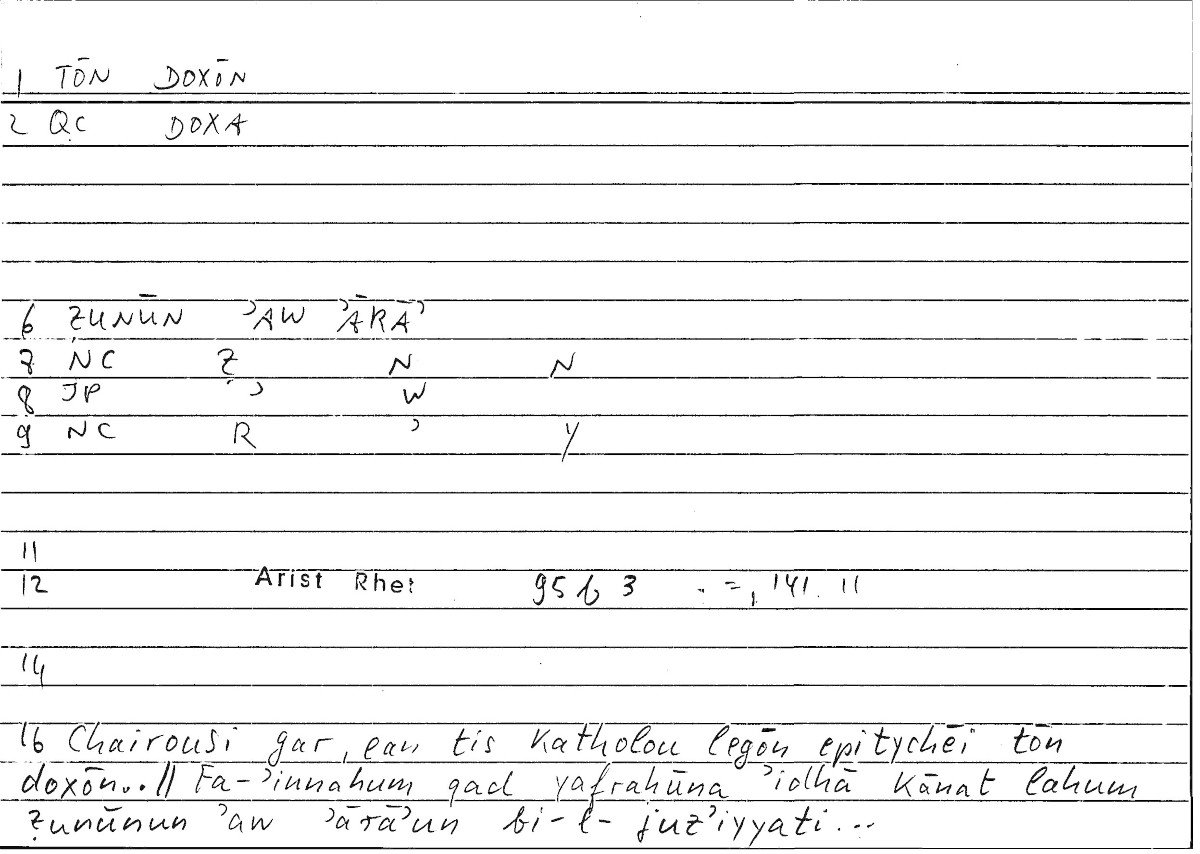 1 TŌN DOXŌN
2 QC DOXA
6 ẒUNŪN ʾAW ʾĀRĀʾ
7 NC Ẓ N N
8 JP ʾ W
9 NC R ʾ Y
11
12 Arist Rhet 95b 3 . =, 141. 11
14
16 Chairousi gar, ean tis katholou legōn epitychēi tōn
doxōn..// Fa-ʾinnahum qad yafrahūna ʾidhā kānat lahum
ẓunūnun ʾaw ʾārāʾun bi-l-juzʾiyyati...